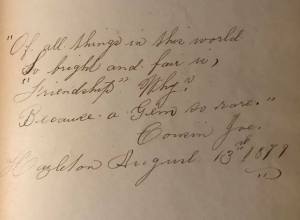 "Of all things in this world
So bright and fair is,
"Friendship" Why?
Because a Gem so rare."
Cousin Joe.
Hazleton August 13th 1879